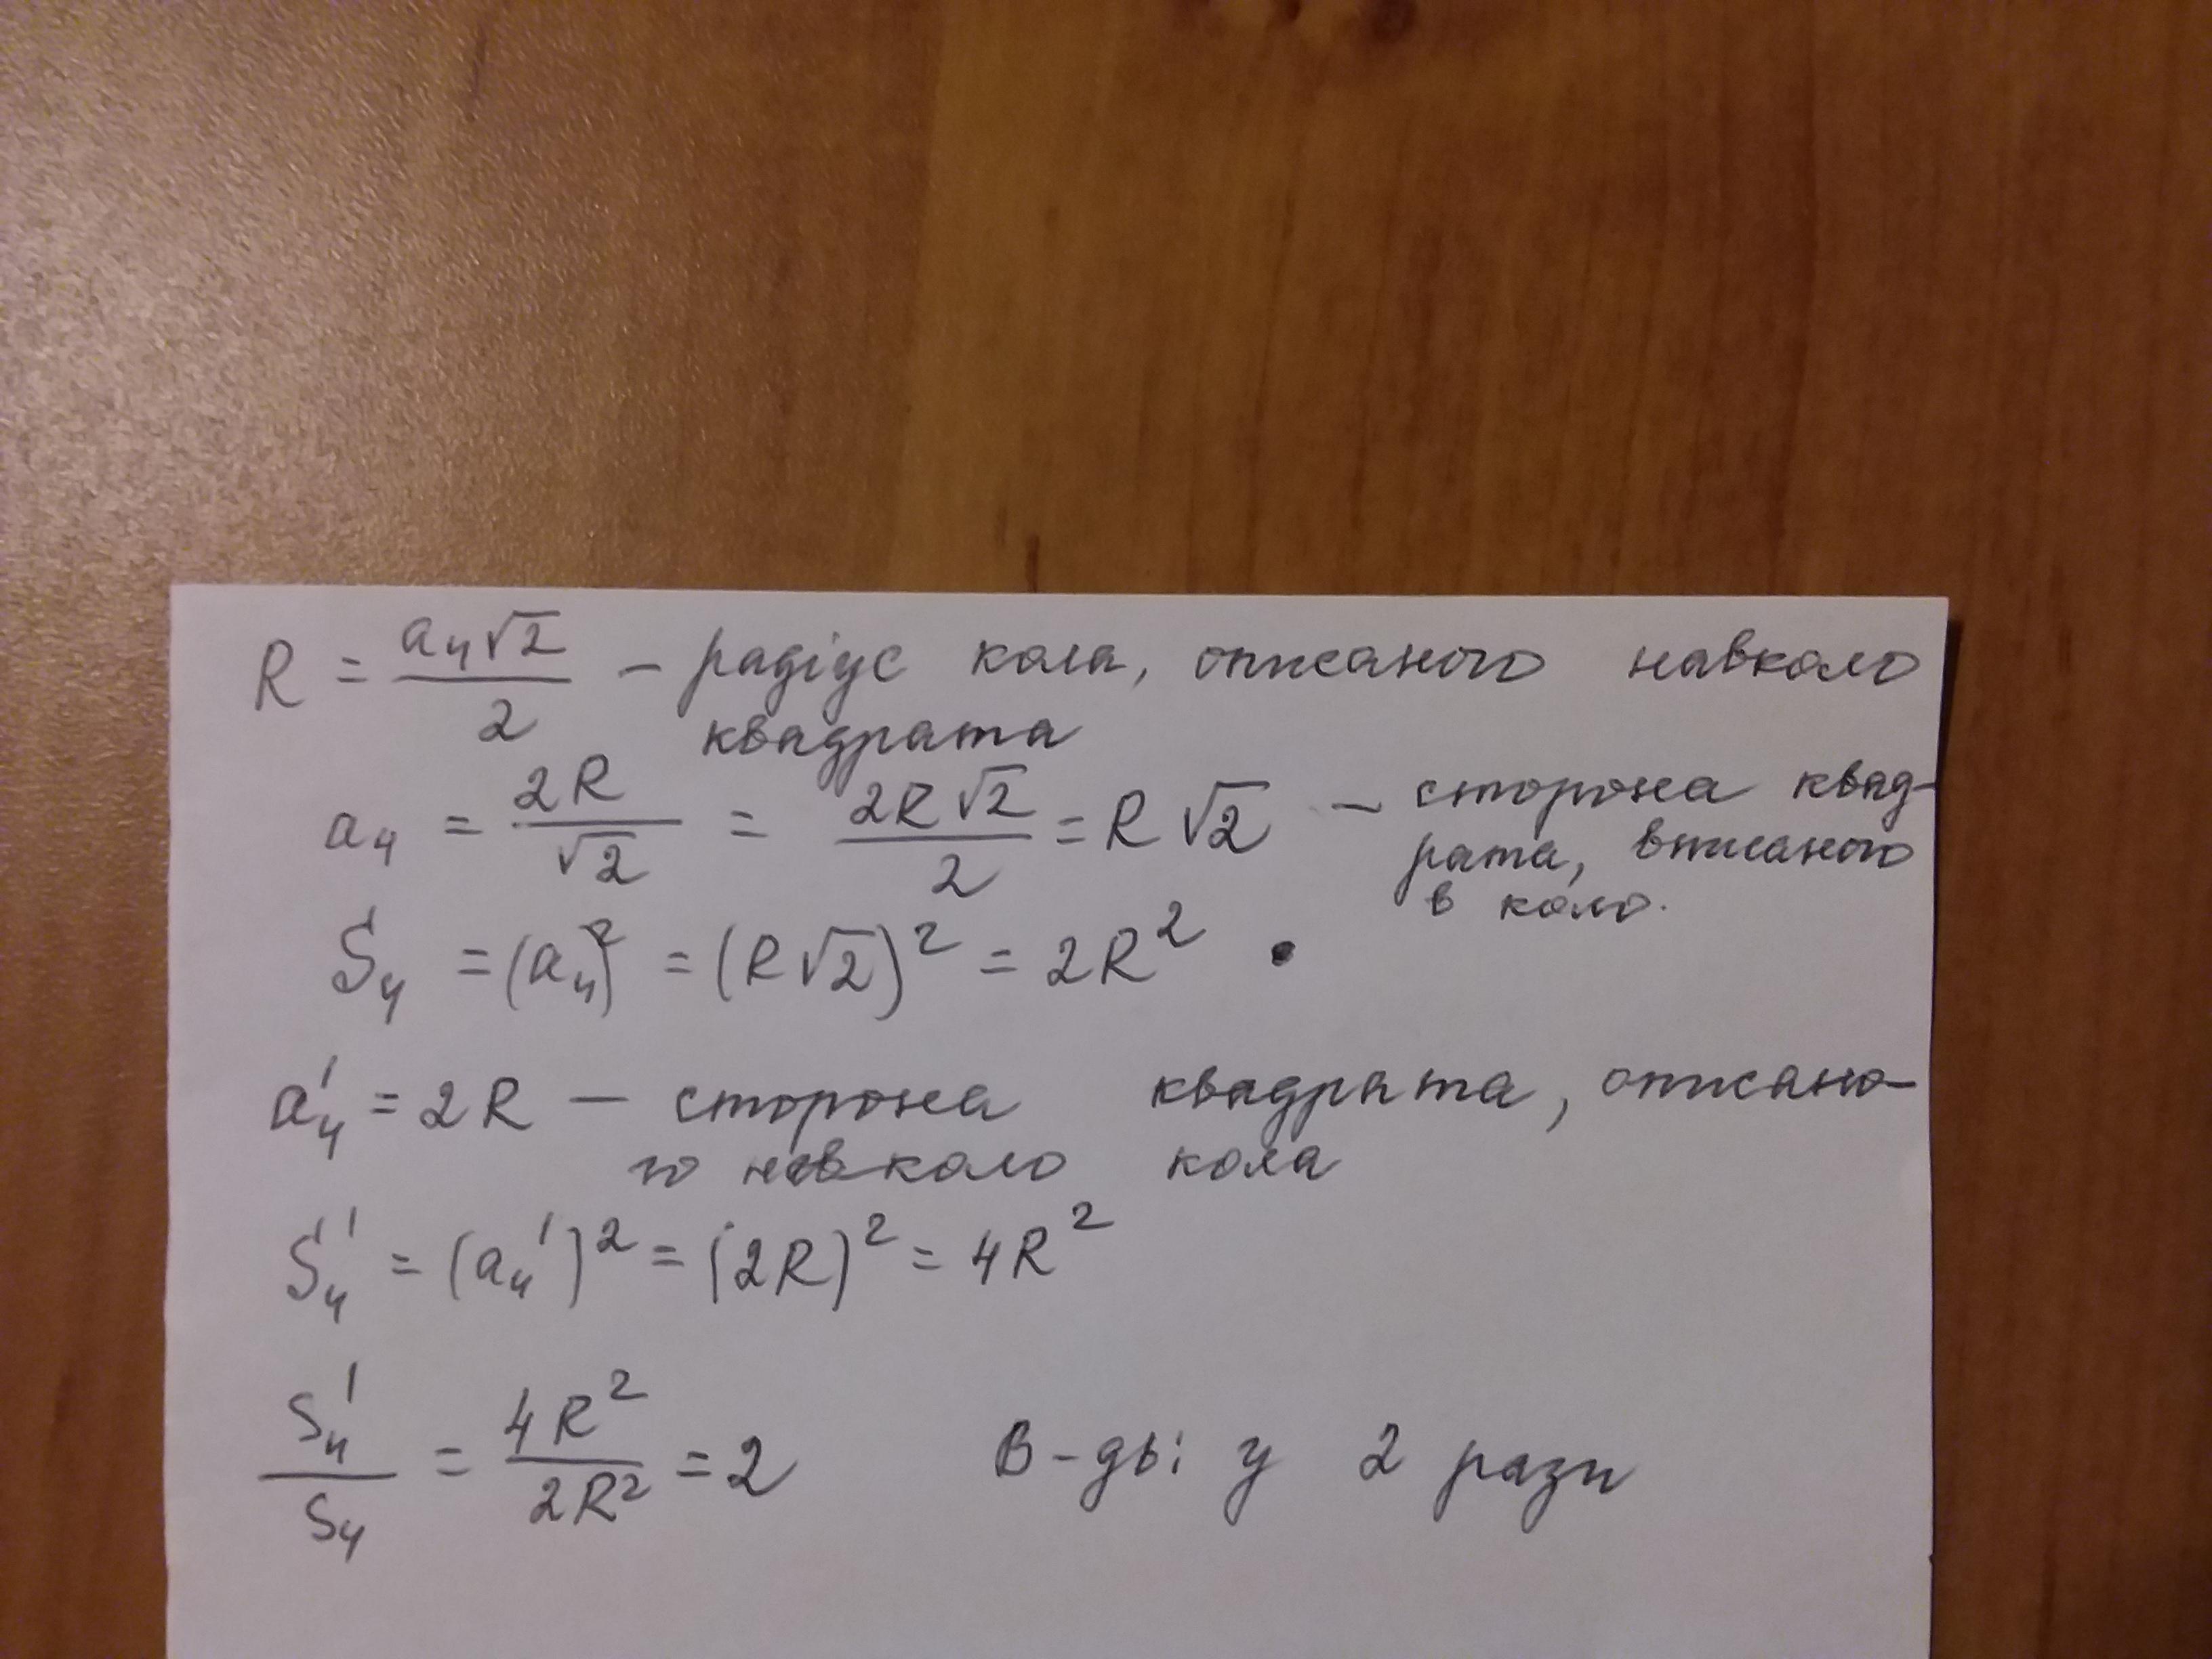 R = a₄√2 / 2 – радіус кола, описаного навколо
квадрата
a₄ = 2R / √2 = 2R√2 / 2 = R√2 – сторона квад-
рата, вписаного
в коло.
S₄ = (a₄)² = (R√2)² = 2R² .
a₄' = 2R – сторона квадрата, описано-
го навколо кола
S₄' = (a₄')² = (2R)² = 4R²
S₄' / S₄ = 4R² / 2R² = 2 В-дь: у 2 рази